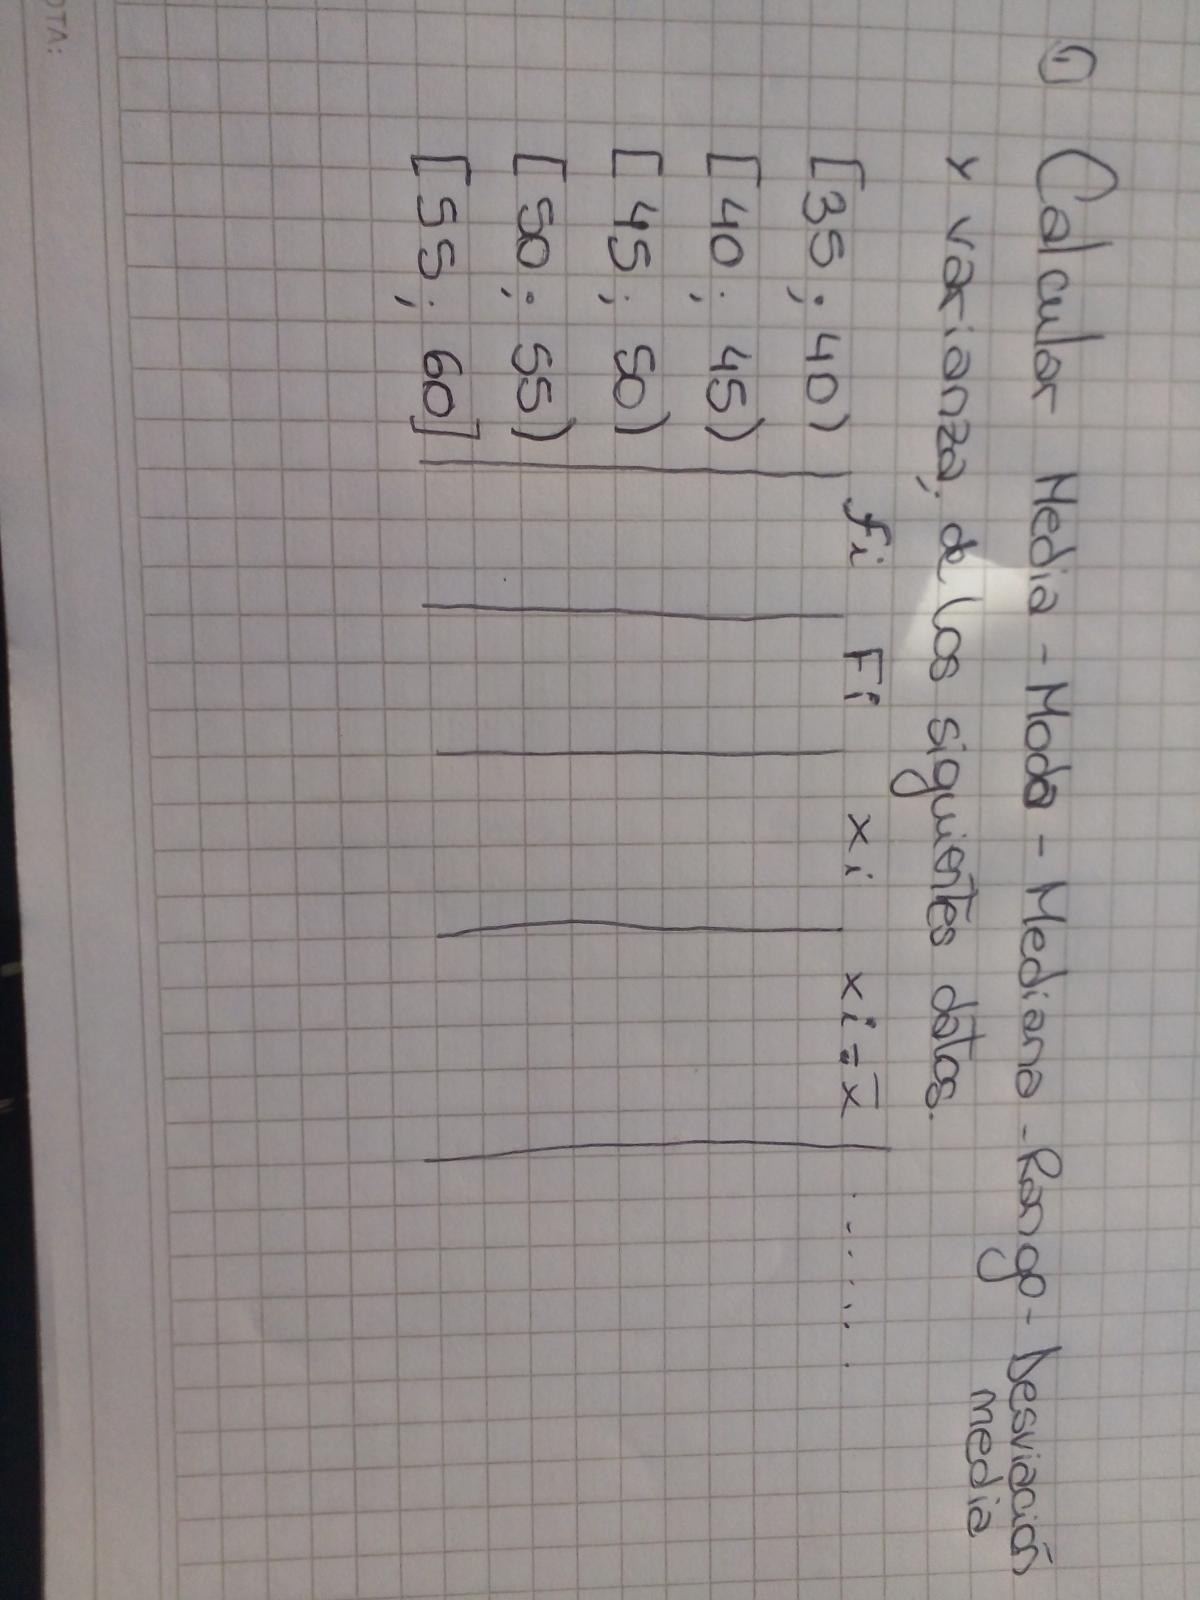 ① Calcular Media - Moda - Mediana - Rango - Desviación media
y varianza, de los siguientes datos.
fi Fi xi xi = x̄ .......
[35 ; 40)
[40 ; 45)
[45 ; 50)
[50 ; 55)
[55 ; 60]
OTA: